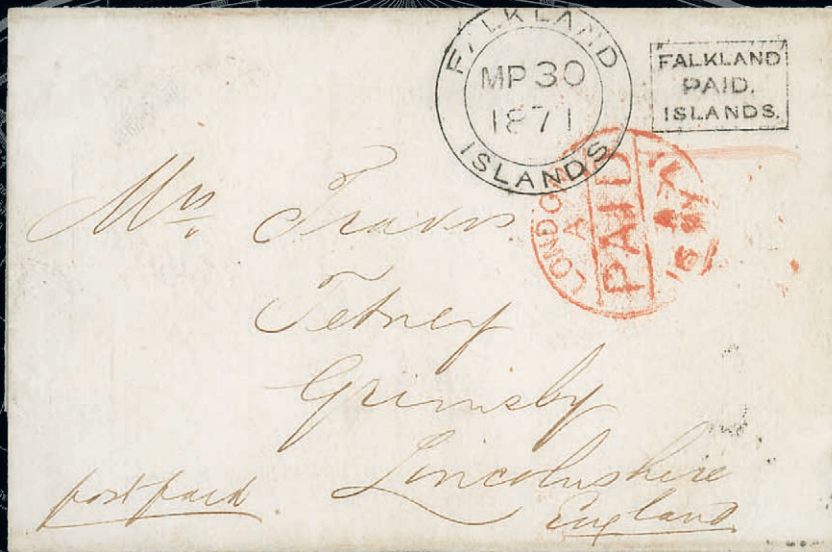 FALKLAND
MR 30
1871
ISLANDS
FALKLAND
PAID.
ISLANDS.
LONDON
A
PAID
MY 71
Mrs. Travis
Tetney
Grimsby
Lincolnshire
England
post paid